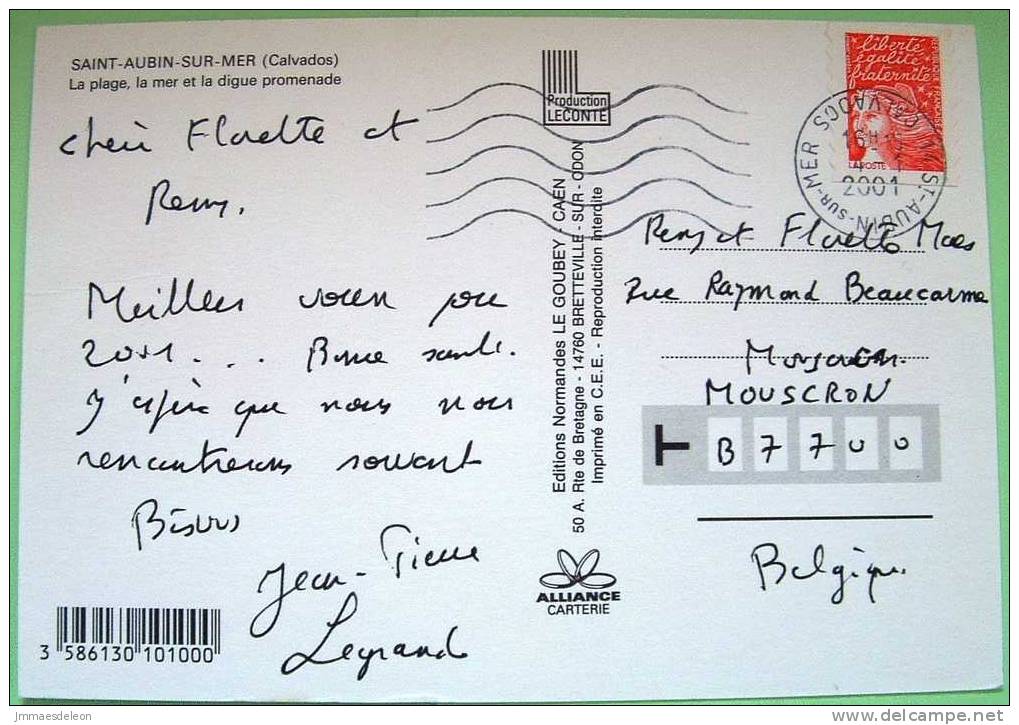 SAINT-AUBIN-SUR-MER (Calvados)
La plage, la mer et la digue promenade
Production
LECONTE
liberté
égalité
fraternité
LA POSTE
ST-AUBIN-SUR-MER
CALVADOS
16H
2001
Florette et
Remy.
Meilleurs voeux pour
2001... Bonne santé.
J'espère que nous nous
rencontrerons souvent
Bisous
Jean-Pierre
Legrand
Editions Normandes LE GOUBEY - CAEN
50 A. Rte de Bretagne - 14760 BRETTEVILLE - SUR - ODON
Imprimé en C.E.E. - Reproduction interdite
Remy et Florette Maes
Rue Raymond Beaucarne
MOUSCRON
T B 7 7 0 0
Belgique
ALLIANCE
CARTERIE
3 586130 101000
jmmaesdeleon
www.delcampe.net